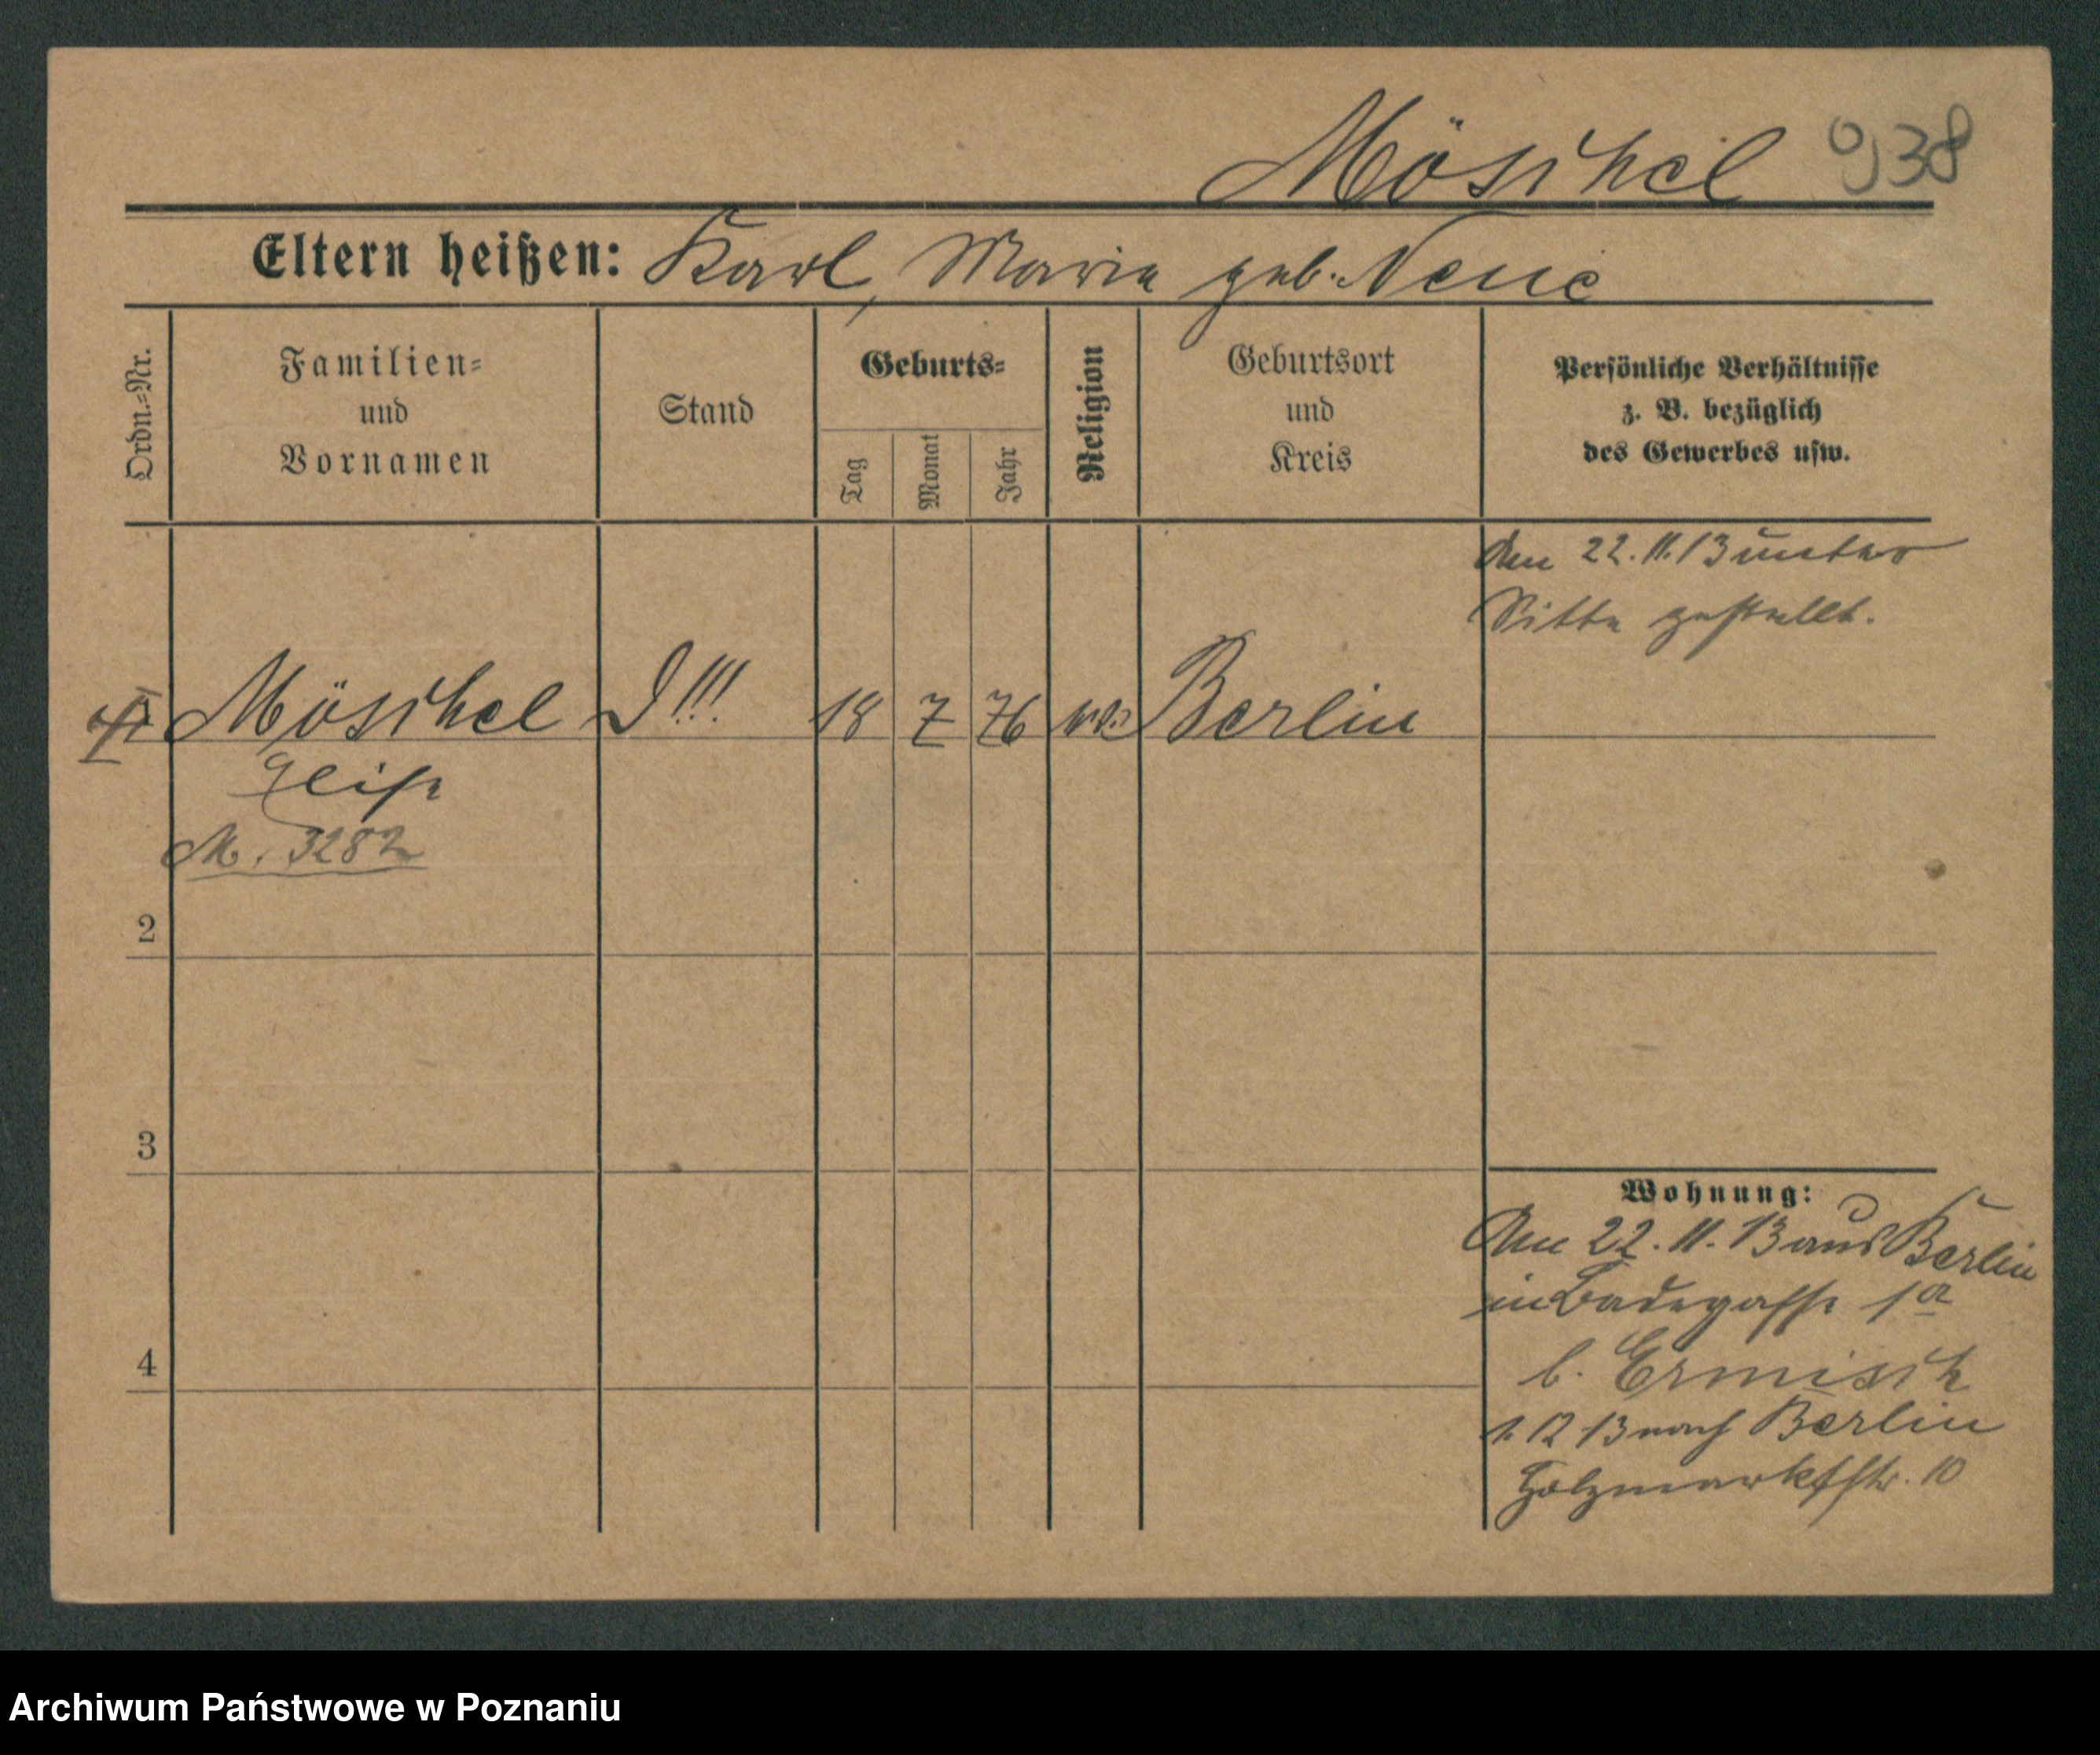 Möschel 938
Eltern heißen: Karl, Maria geb. Neue
Ordn.-Nr.
Familien-
und
Vornamen
Stand
Geburts-
Tag
Monat
Jahr
Religion
Geburtsort
und
Kreis
Persönliche Verhältnisse
z. B. bezüglich
des Gewerbes usw.
Am 22.11.13 unter
Sitte gestellt.
Möschel I!!! 18 7 76 Berlin
M. 3282
2
3
4
Wohnung:
Am 22.11.13 aus Berlin
in Badegasse 1a
b. Ermisch
1.12 13 nach Berlin
Holzmarktstr. 10
Archiwum Państwowe w Poznaniu